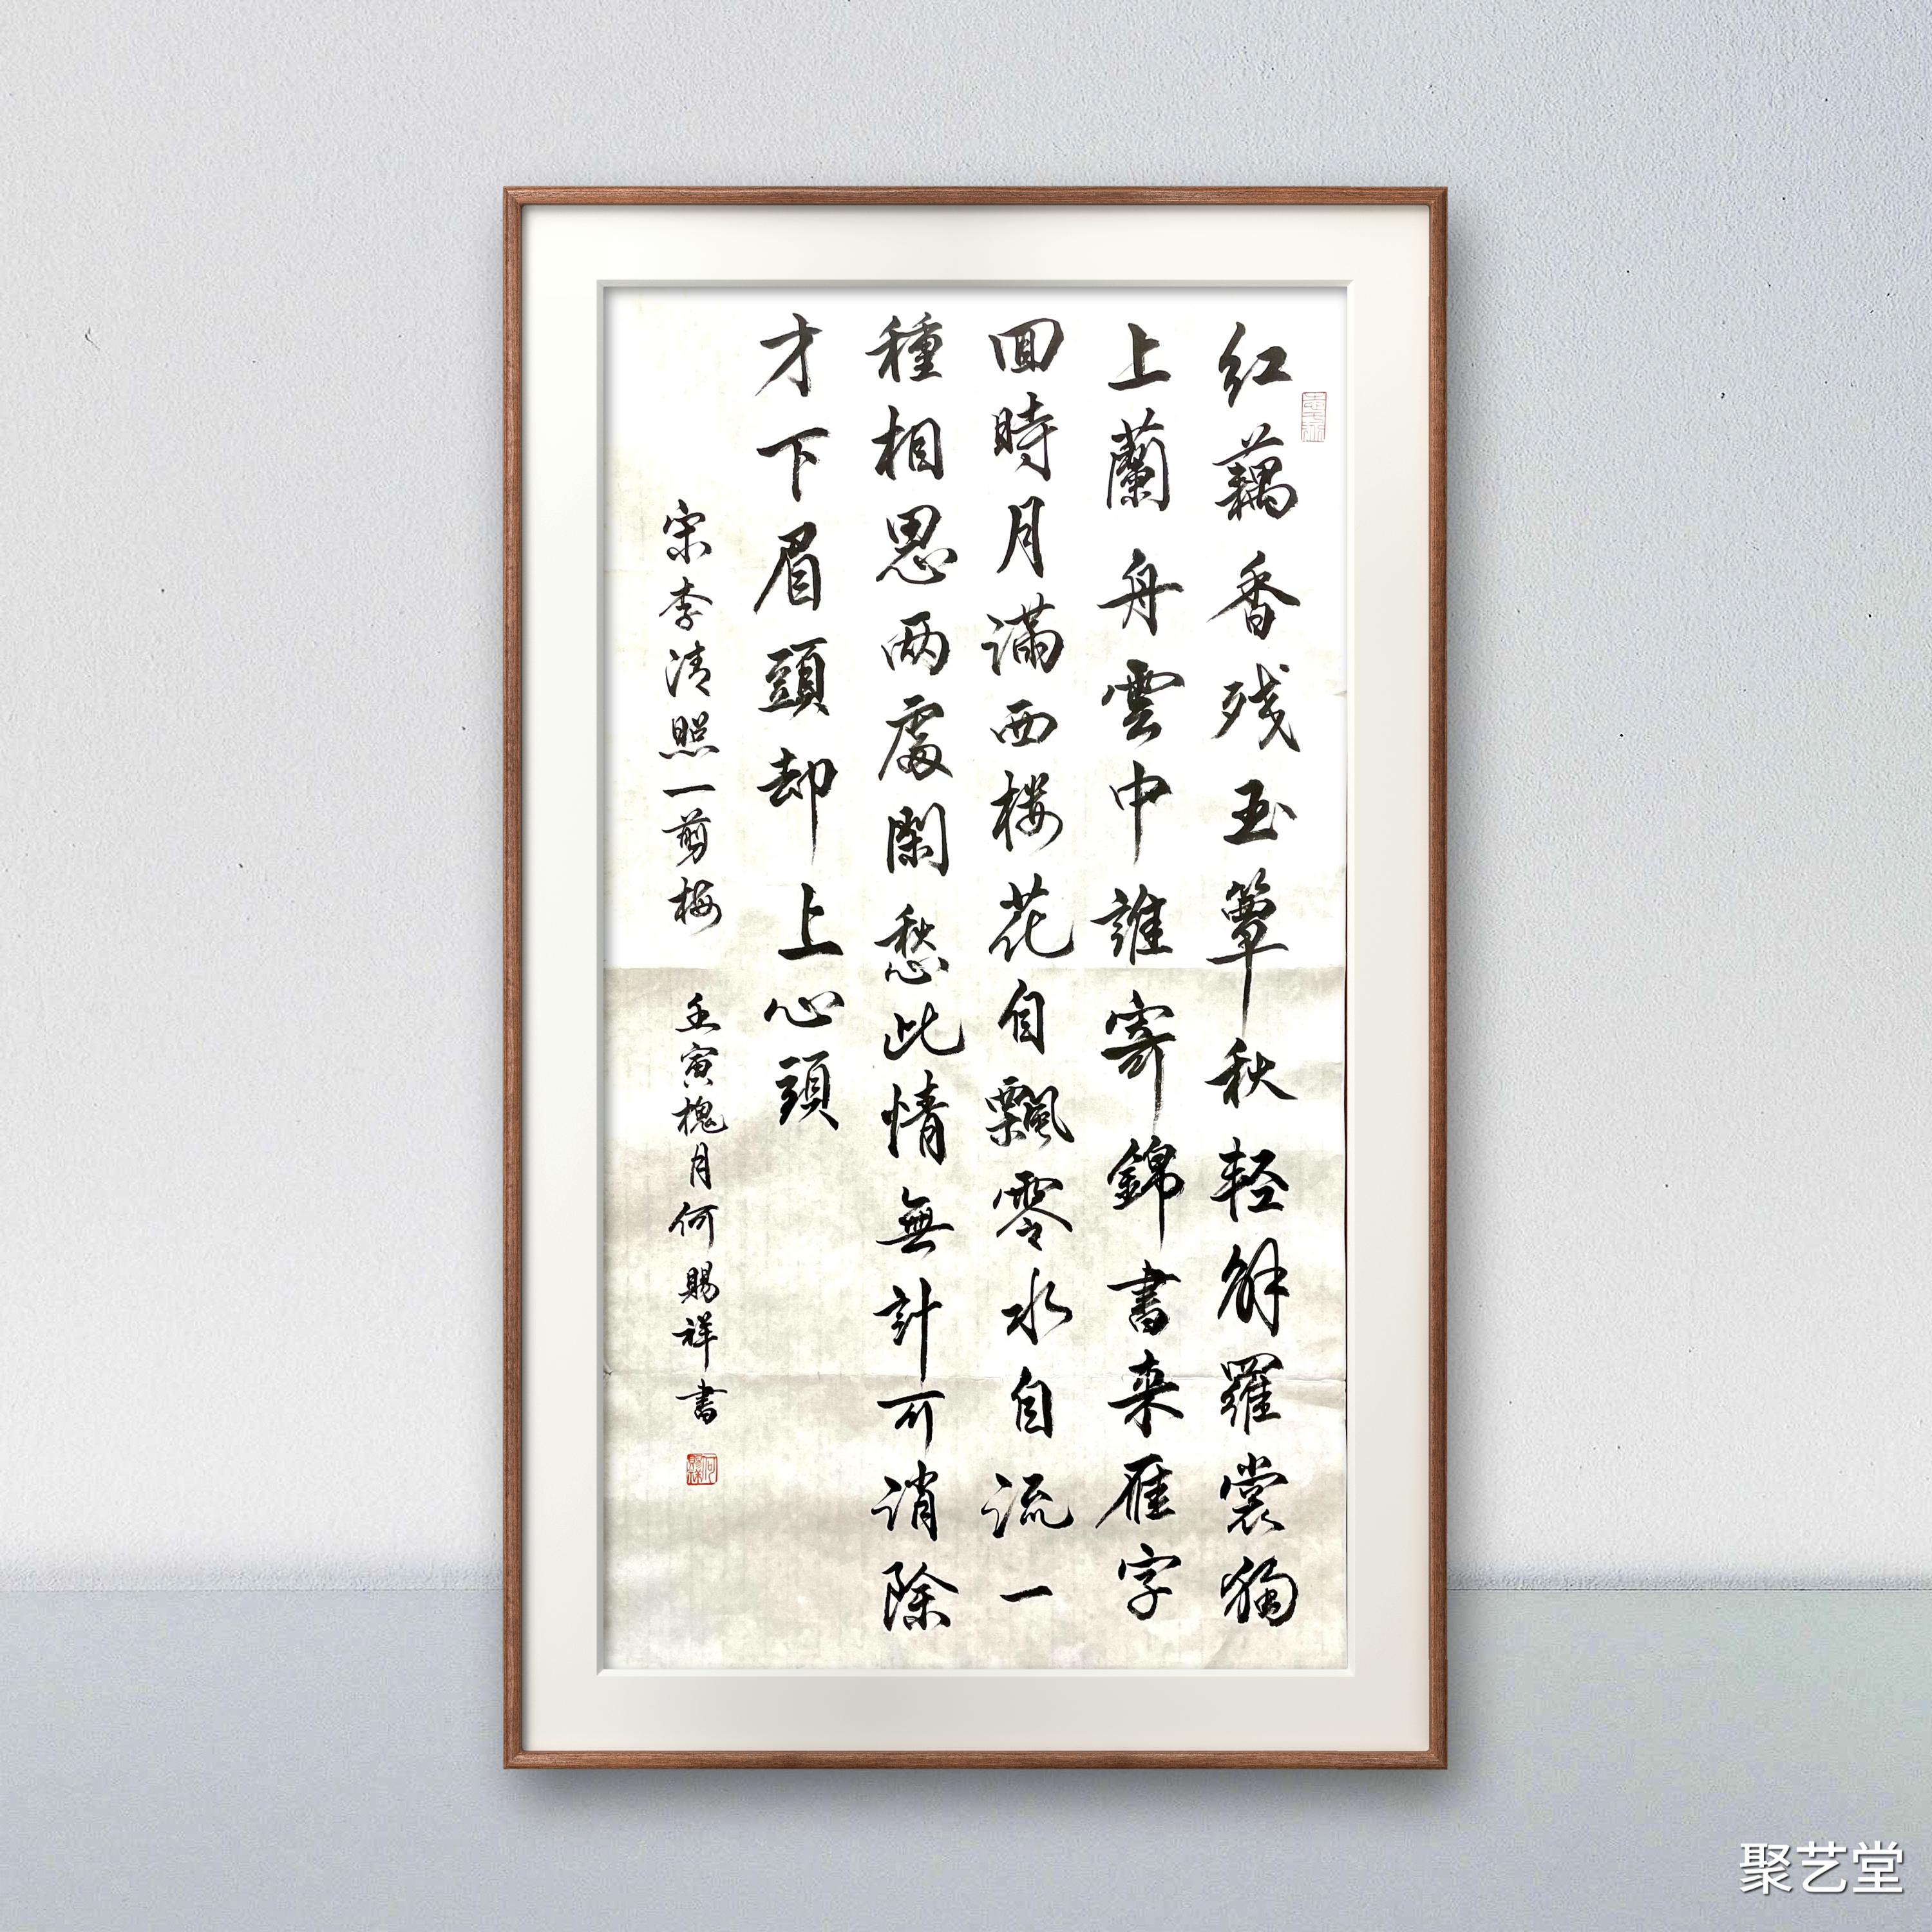 红藕香残玉簟秋轻解羅裳獨
上蘭舟雲中誰寄錦書来雁字
回時月滿西楼花自飄零水自流一
種相思两處閑愁此情無計可消除
才下眉頭却上心頭
宋李清照一剪梅 壬寅槐月何賜祥書
何賜祥
聚艺堂